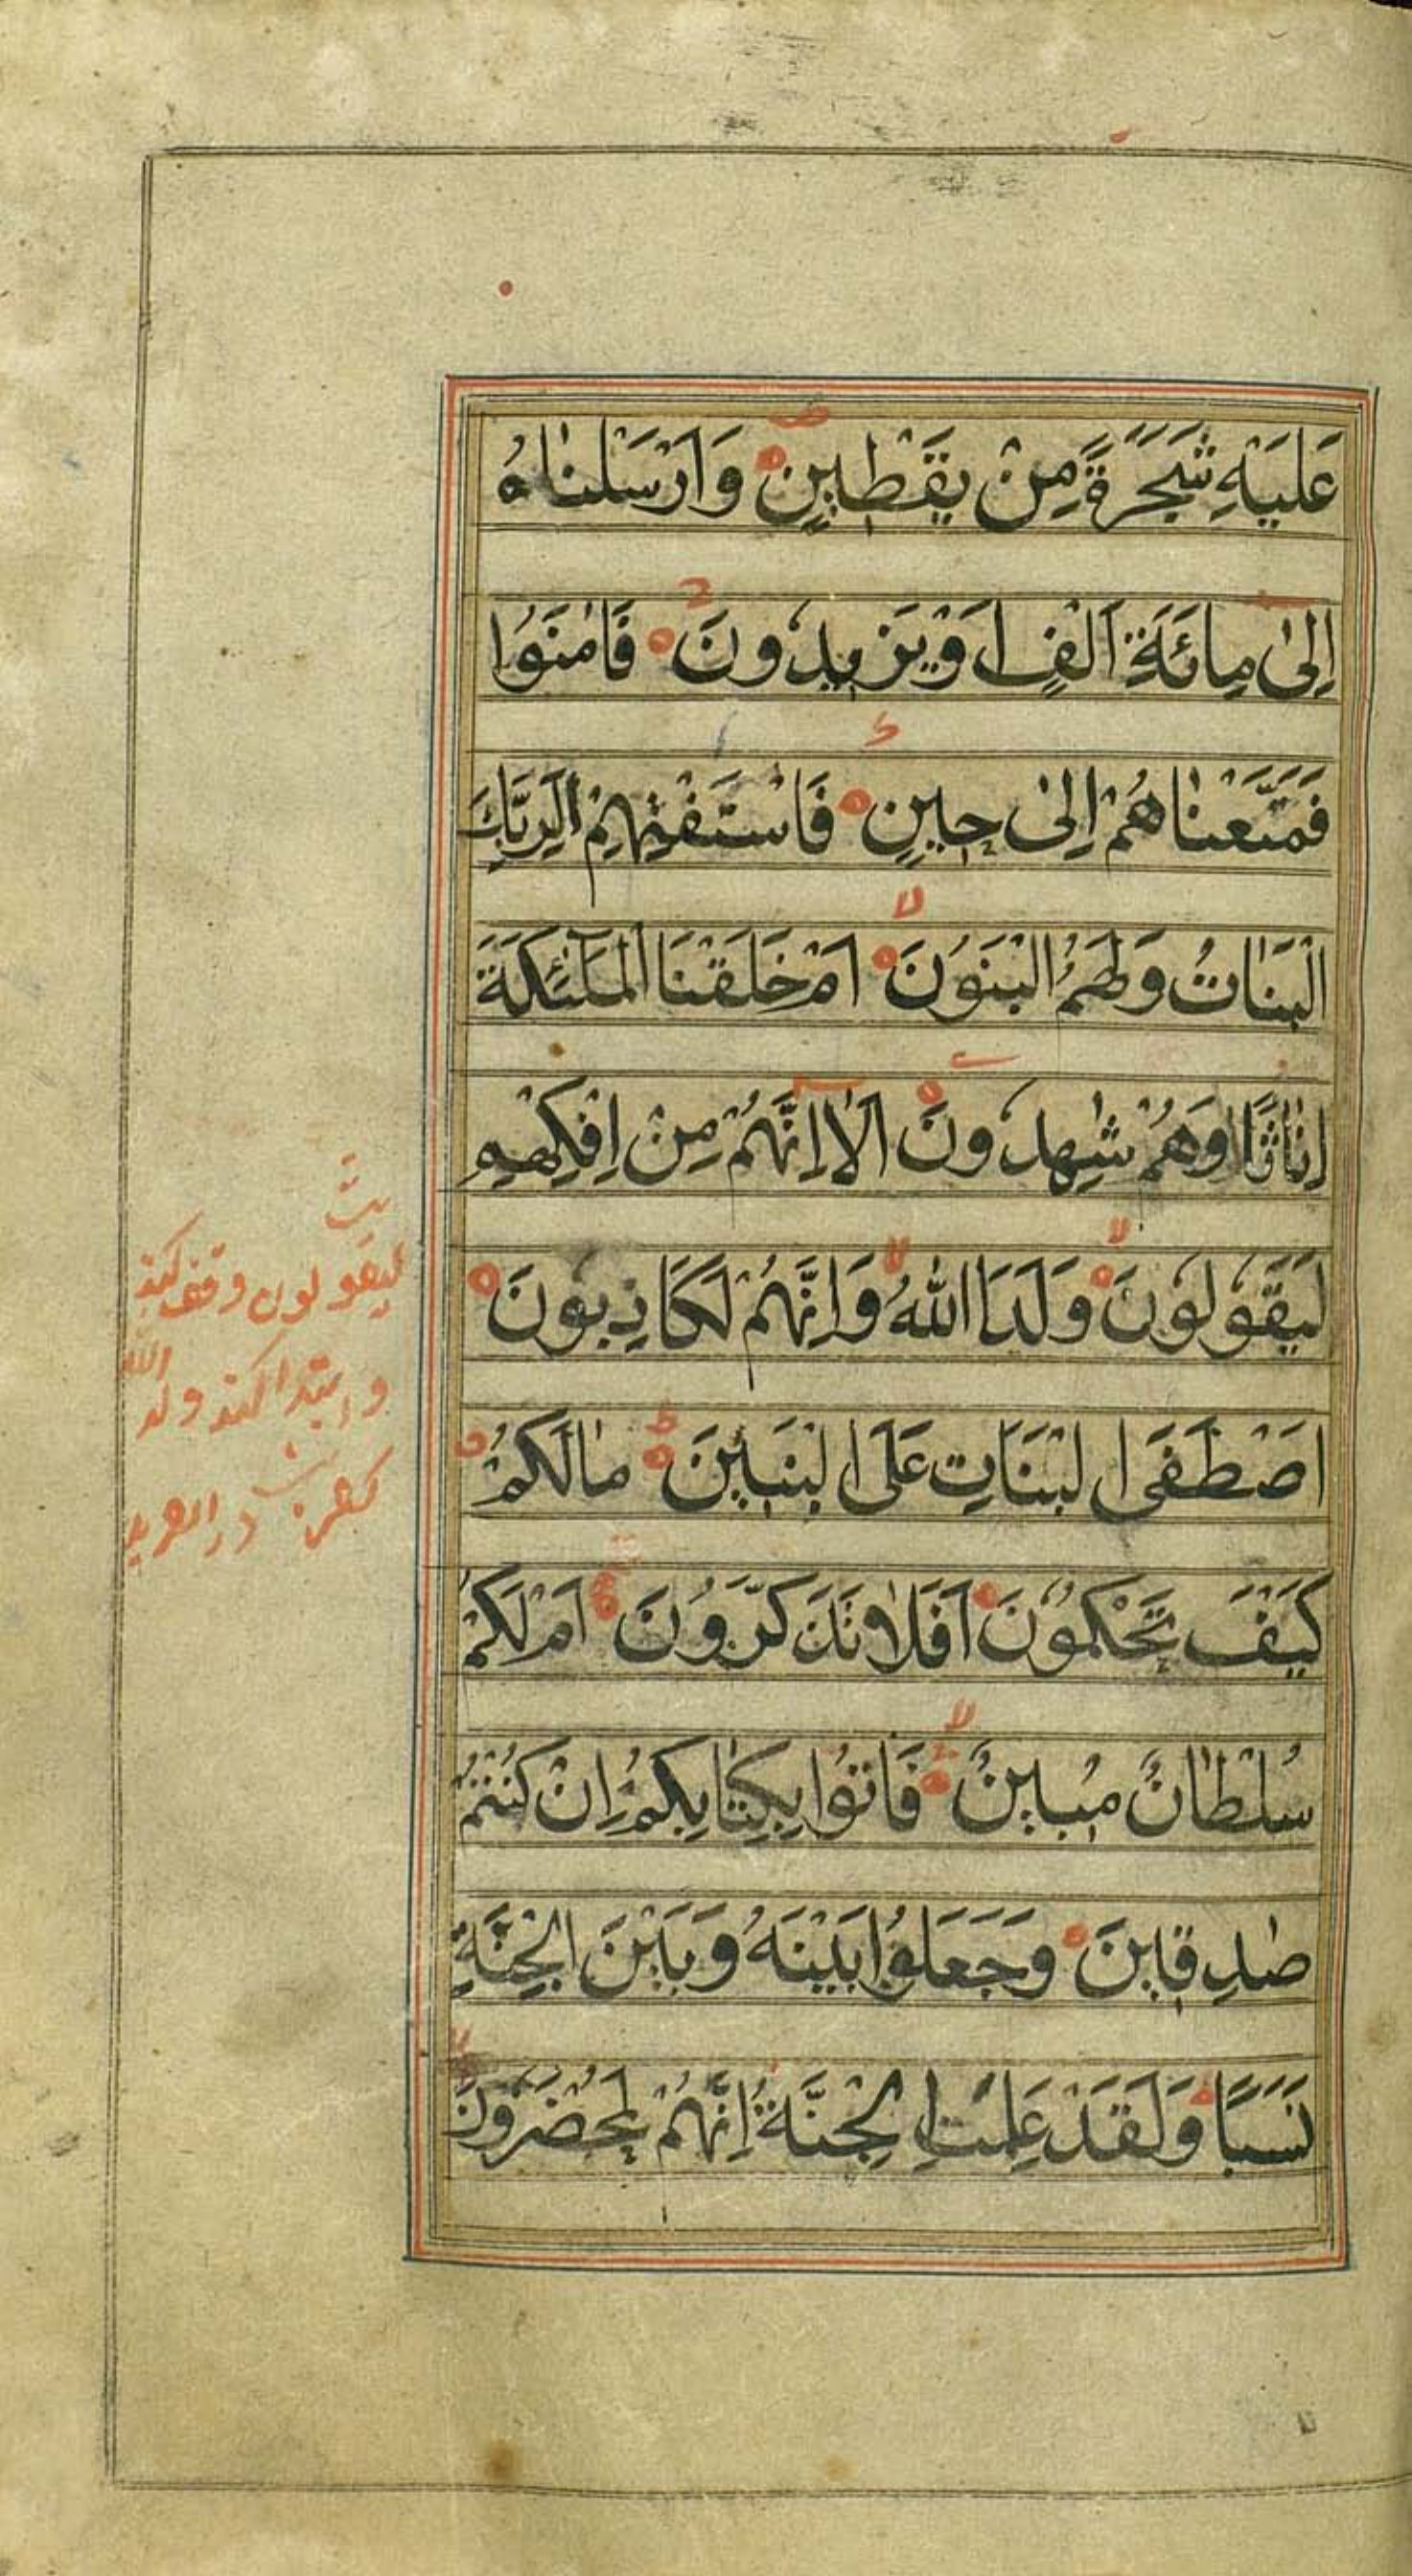 عَلَيْهِ شَجَرَةً مِنْ يَقْطِينٍ وَاَرْسَلْنَاهُ
اِلىٰ مِائَةِ اَلْفٍ اَوْ يَزِيدُونَ فَاٰمَنُوا
فَمَتَّعْنَاهُمْ اِلىٰ حِينٍ فَاسْتَفْتِهِمْ اَلِرَبِّكَ
الْبَنَاتُ وَلَهُمُ الْبَنُونَ اَمْ خَلَقْنَا الْمَلٰٓئِكَةَ
اِنَاثًا وَهُمْ شٰهِدُونَ اَلَا اِنَّهُمْ مِنْ اِفْكِهِمْ
لَيَقُولُونَ وَلَدَ اللّٰهُ وَاِنَّهُمْ لَكَاذِبُونَ
اَصْطَفَى الْبَنَاتِ عَلَى الْبَنِينَ مَالَكُمْ
كَيْفَ تَحْكُمُونَ اَفَلَا تَذَكَّرُونَ اَمْ لَكُمْ
سُلْطَانٌ مُبِينٌ فَاْتُوا بِكِتَابِكُمْ اِنْ كُنْتُمْ
صٰدِقِينَ وَجَعَلُوا بَيْنَهُ وَبَيْنَ الْجِنَّةِ
نَسَبًا وَلَقَدْ عَلِمَتِ الْجِنَّةُ اِنَّهُمْ لَمُحْضَرُونَ
ليقولون وقف كند
و ابتدا كند ولد الله
كفرست